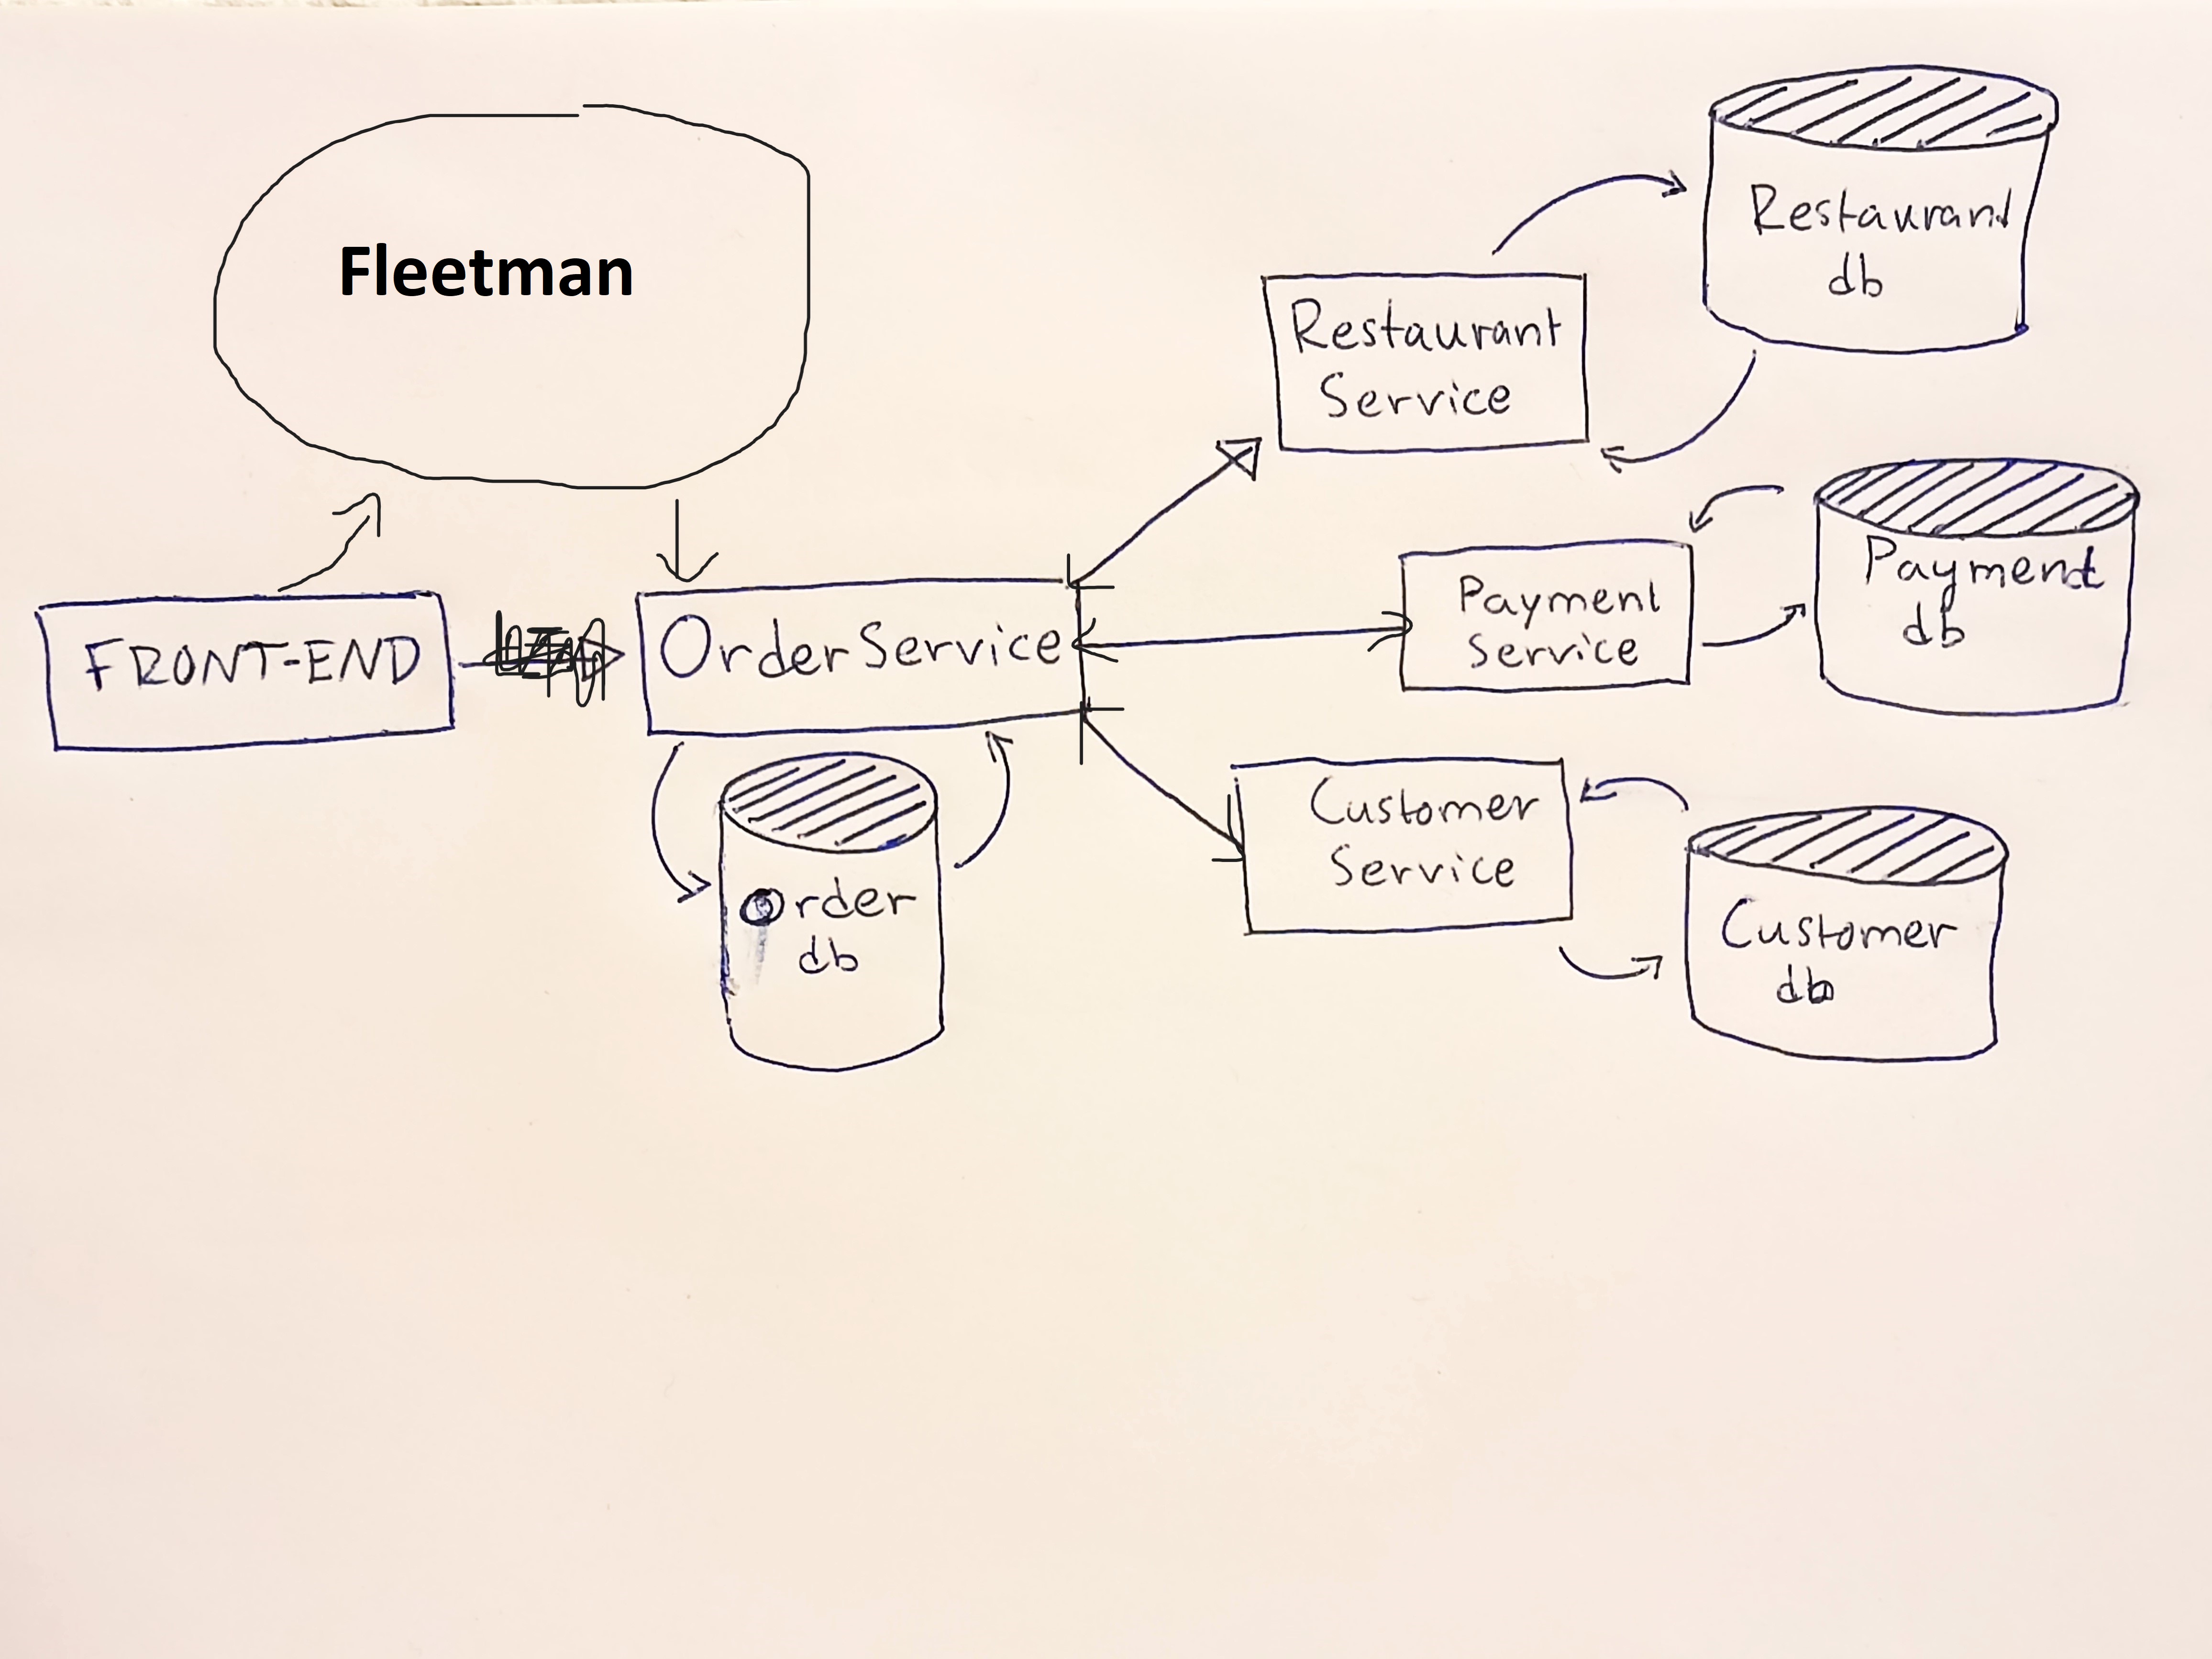 Fleetman
FRONT-END
Order Service
Order
db
Restaurant
Service
Restaurant
db
Payment
Service
Payment
db
Customer
Service
Customer
db